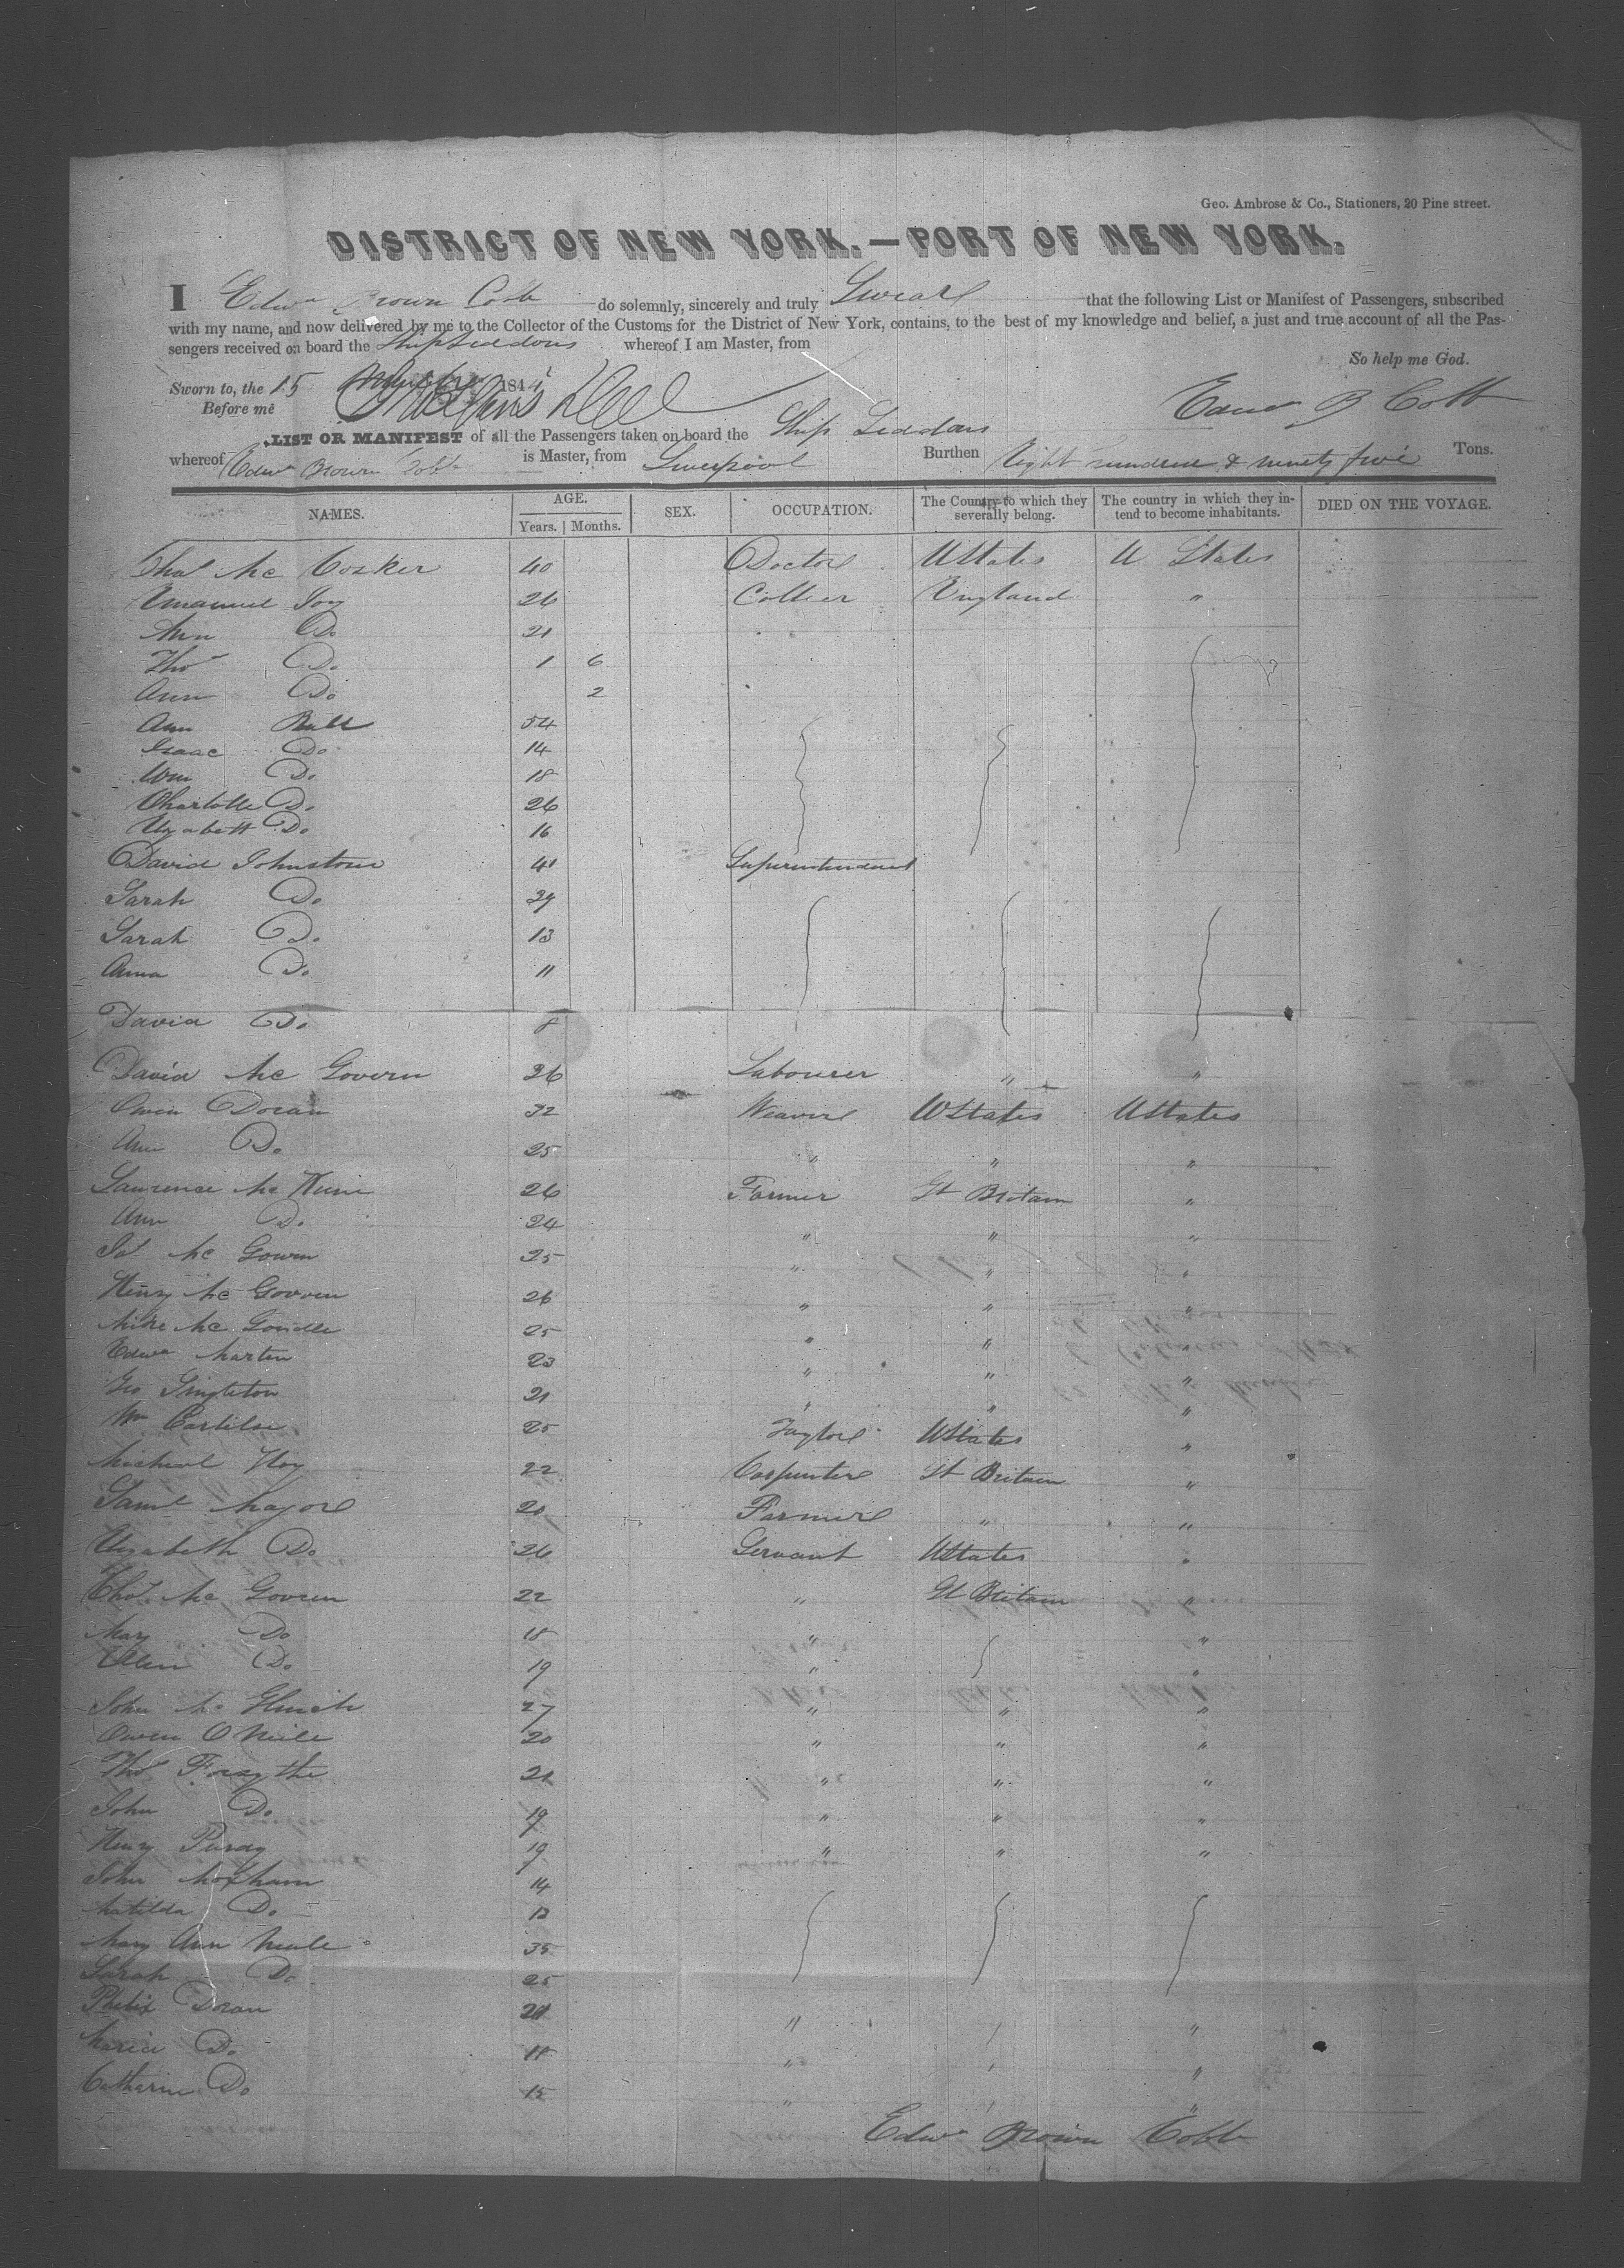 Geo. Ambrose & Co., Stationers, 20 Pine street.
DISTRICT OF NEW YORK.—PORT OF NEW YORK.
I Edwd Brown Cobb do solemnly, sincerely and truly Swear that the following List or Manifest of Passengers, subscribed
with my name, and now delivered by me to the Collector of the Customs for the District of New York, contains, to the best of my knowledge and belief, a just and true account of all the Pas-
sengers received on board the Ship Siddons whereof I am Master, from
So help me God.
Sworn to, the 15 1844
Before me Edwd B Cobb
LIST OR MANIFEST of all the Passengers taken on board the Ship Siddons
whereof Edwd Brown Cobb is Master, from Liverpool Burthen Eight hundred & ninety five Tons.
NAMES. AGE. Years. Months. SEX. OCCUPATION. The Country to which they severally belong. The country in which they intend to become inhabitants. DIED ON THE VOYAGE.
Thos Mc Cosker 40 Doctor U States U States
Emanuel Joy 26 Collier England "
Ann Do 21
Thos Do 1 6
Ann Do 2
Ann Bull 54
Isaac Do 14
Wm Do 18
Charlotte Do 26
Elizabett Do 16
David Johnstone 41 Superintendent
Sarah Do 39
Sarah Do 13
Anna Do 11
David Do 8
David Mc Govern 26 Labourer " "
Owen Doran 32 Weaver U States U States
Ann Do 25 " " "
Lawrence Mc 26 Farmer Gt Britain "
Ann Do 24 " " "
Jas Mc Gowen 25 " " "
Henry Mc Govern 26 " " "
Mike Mc 25 " " "
Edwd Martin 23 " " "
Geo Singleton 21 " " "
Wm Carlile 25 Taylor U States "
Micheal Hoy 22 Carpenter Gt Britain "
Saml Major 20 Farmer " "
Elizabeth Do 26 Servant U States "
Thos Mc Govern 22 " Gt Britain "
Mary Do 18 " "
Ellen Do 19 " "
John Mc 27 " " "
Owen O Neile 20 " " "
Thos Forsythe 21 " " "
John Do 19 " " "
Henry Purdy 19 " " "
John Moxham 14
Matilda Do 12
Mary Ann Neale 35
Sarah Do 25
Phelix Doran 20 " "
Maria Do 18 " "
Catharine Do 15 " "
Edwd Brown Cobb